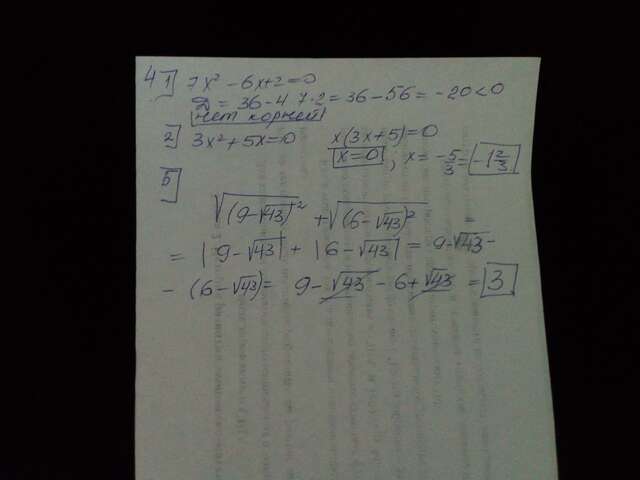 4 1] 7x² - 6x + 2 = 0
Д = 36 - 4 7·2 = 36 - 56 = -20 < 0
нет корней
2] 3x² + 5x = 0 x(3x+5) = 0
x = 0 , x = -5/3 = -1 2/3
5]
√(9-√43)² + √(6-√43)² =
= |9-√43| + |6-√43| = 9-√43 -
- (6-√43) = 9 - √43 - 6 + √43 = 3